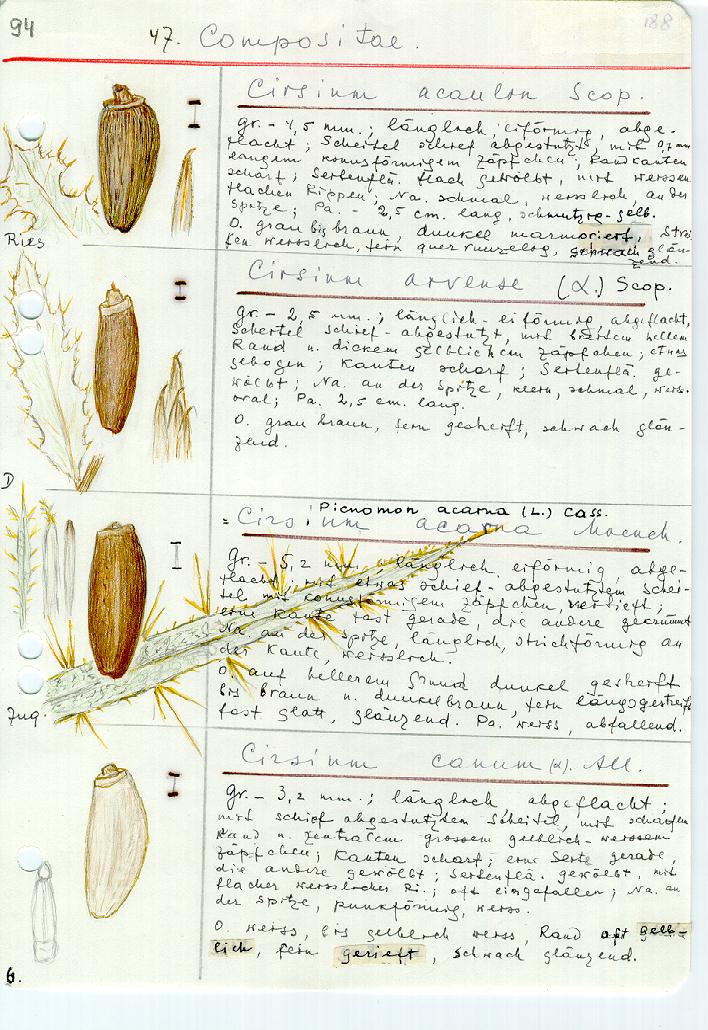 94
188
47. Compositae.
Cirsium acaulon Scop.
Gr. - 4,5 mm.; länglich, eiförmig, abge-
flacht; Scheitel schief abgestutzt, mit 0,7 mm
langem konusförmigem Zäpfchen; Randkanten
scharf; Seitenflä. flach gewölbt, mit weissen
flachen Rippen; Na. schmal, weisslich, an der
Spitze; Pa. - 2,5 cm. lang, schmutzig-gelb.
O. grau bis braun, dunkel marmoriert, Strei-
fen weisslich, fein querrunzelig, schwach glän-
zend.
Ries
Cirsium arvense (L.) Scop.
Gr. - 2,5 mm.; länglich-eiförmig, abgeflacht,
Scheitel schief-abgestutzt, mit hellem
Rand u. dickem gelblichem Zäpfchen; etwas
gebogen; Kanten scharf; Seitenflä. ge-
wölbt; Na. an der Spitze, klein, schmal, weiss-
oval; Pa. 2,5 cm. lang.
O. graubraun, fein gestreift, schwach glän-
zend.
D
Picnomon acarna (L.) Cass.
= Cirsium acarna Moench.
Gr. - 5,2 mm. länglich eiförmig abge-
flacht, mit etwas schief-abgestutztem Schei-
tel mit konusförmigem Zäpfchen, vertieft;
eine Kante fast gerade, die andere gekrümmt
Na. an der Spitze, länglich, strichförmig an
der Kante, weisslich.
O. auf hellerem Grund dunkel gestreift
bis braun u. dunkelbraun, fein längsgestreift
fast glatt, glänzend. Pa. weiss, abfallend.
Jug.
Cirsium canum (L). All.
Gr. - 3,2 mm.; länglich abgeflacht;
mit schief abgestutztem Scheitel, mit scharfem
Rand u. zentralem grossem gelblich-weissem
Zäpfchen; Kanten scharf; eine Seite gerade,
die andere gewölbt; Seitenflä. gewölbt, mit
flacher weisslicher Ri.; oft eingefallen; Na. an
der Spitze, punktförmig, weiss.
O. weiss, bis gelblich weiss, Rand oft gelb-
lich, fein gerieft, schwach glänzend.
G.